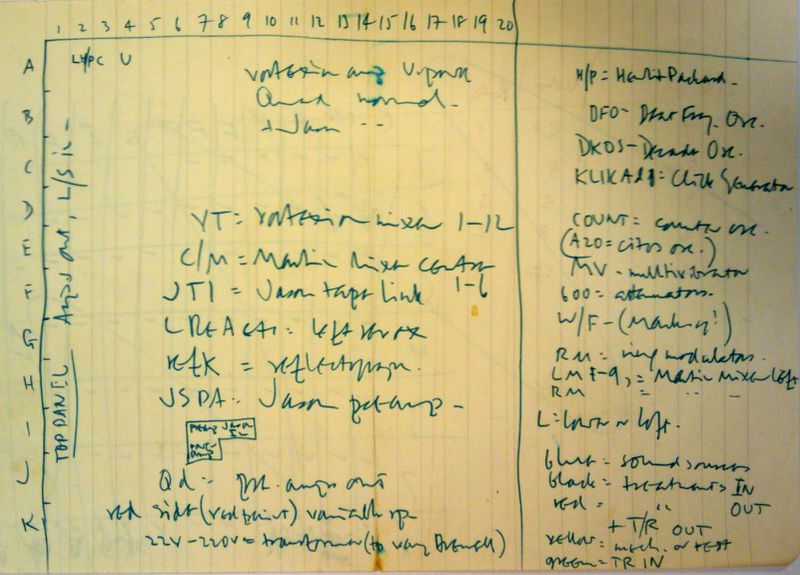 1 2 3 4 5 6 7 8 9 10 11 12 13 14 15 16 17 18 19 20
A
B
C
D
E
F
G
H
I
J
K
TOP PANEL Amps out, L/S in -
U
vortexion amp
Quad normal -
+ Jason " "
VT = vortexion mixer 1-12
C/M = Martin Mixer
1-6
JTI = Jason tape link
refK = reflectograph.
JSPA = Jason preamp -
Qd = pre. amps out
red side (red paint) variable sp
22V - 220V = transformer (to vary Brenell)
H/P = Hewlett Packard.
DFO - Beat Freq. Osc.
DKOS - Decade Osc.
= Click Generator
COUNT = counter osc.
(A20 = osc.)
MV - multivibrator
600 = attenuators.
W/F -
RM = ring modulators.
LMF-9, = Martin Mixer left
RM = " " -
L = lower or left.
blue = sound sources
black = treatments IN
red = " OUT
+ T/R OUT
yellow = mech. or test
green = TR IN